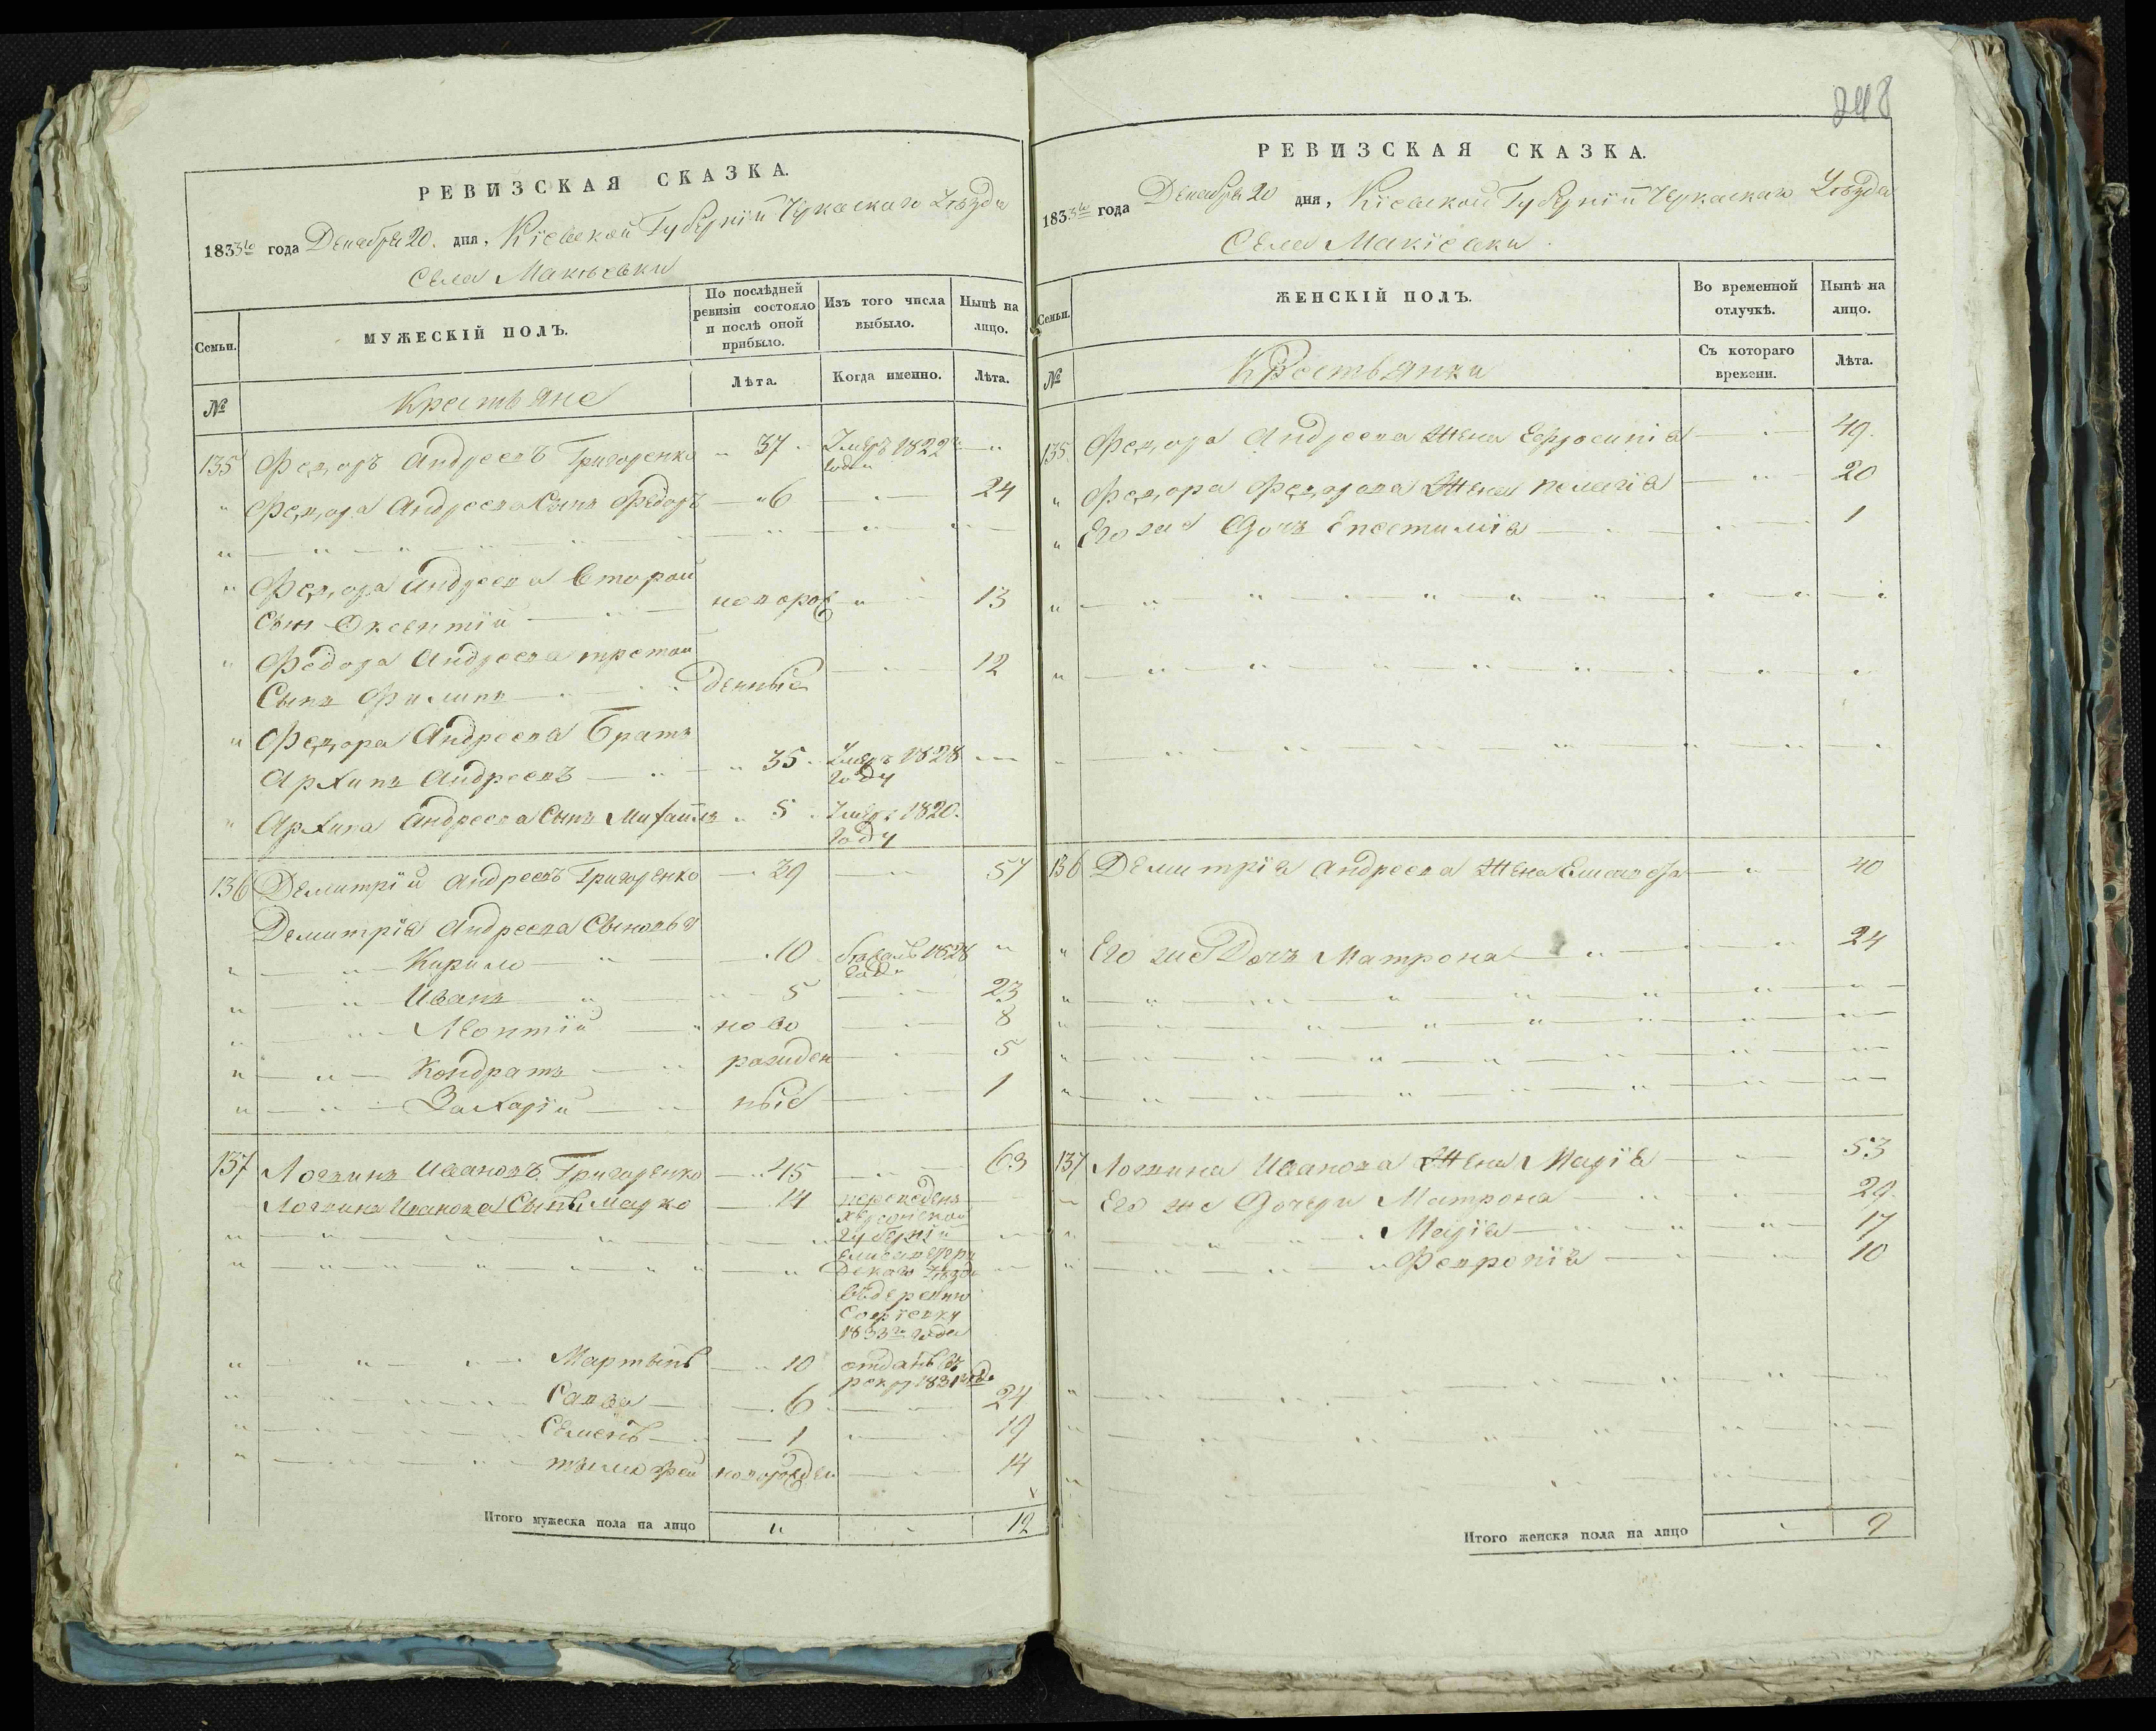 РЕВИЗСКАЯ СКАЗКА.
1833го года Декабря 20. дня, Кіевской Губерніи Черкаскаго Уѣзда
Села Макѣевки
Семьи.
МУЖЕСКІЙ ПОЛЪ.
По послѣдней ревизіи состояло и послѣ оной прибыло.
Изъ того числа выбыло.
Нынѣ на лицо.
№
Крестьяне
Лѣта.
Когда именно.
Лѣта.
135 Федоръ Андреевъ Григоренко 37 Умеръ 1822го года
Федора Андреева Сынъ Федоръ 6 24
Федора Андреева Второй
Сын Оксентій новорож 13
Федора Андреева третой
Сынъ Филипъ денные 12
Федора Андреева Братъ
Архипъ Андреевъ 35 Умеръ 1828 году
Архипа Андреева Сынъ Михаилъ 5 Умеръ 1820. году
136 Демитрій Андреевъ Григоренко 39 57
Демитрія Андреева Сыновья
Кирило 10 1828 года
Иванъ 5 23
Леонтій ново 8
Кондратъ рожден 5
Захарій ные 1
137 Логвинъ Ивановъ Григоренко 45 63
Логвина Иванова Сыны Марко 14 переведенъ
Херсонской
Губерніи
Елисаветгра
дскаго Уезда
въ деревню
Софіевку
1833го года
Мартынъ 10 отданъ въ
рекру 1831 года
Савва 6 24
Семенъ 1 19
тимофей новорожден 14
Итого мужеска пола на лицо 12
248
РЕВИЗСКАЯ СКАЗКА.
1833го года Декабря 20 дня, Кіевской Губерніи Черкаскаго Уѣзда
Села Макіевки.
Семьи.
ЖЕНСКІЙ ПОЛЪ.
Во временной отлучкѣ.
Нынѣ на лицо.
№
Крестьянки
Съ котораго времени.
Лѣта.
135 Федора Андреева Жена Ефросинія 49.
Федора Федорова Жена Пелагія 20
Его же Дочь Епестимія 1
136 Демитрія Андреева Жена 40
Его же Дочь Матрона 24
137 Логвина Иванова Жена Марія 53
Его же Дочери Матрона 29.
Марія 17
Февронія 10
Итого женска пола на лицо 9